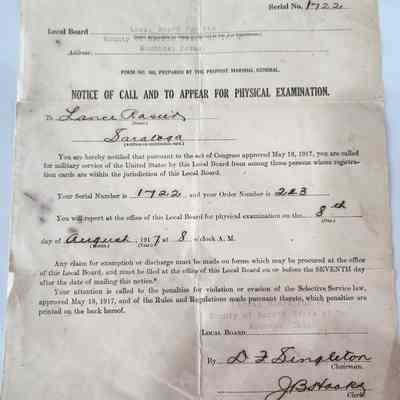 Serial No. 1722
Local Board
Local Board for the
County of
Address
Kountze, Texas
FORM NO. 103, PREPARED BY THE PROVOST MARSHAL GENERAL.
NOTICE OF CALL AND TO APPEAR FOR PHYSICAL EXAMINATION.
To Lance
(Name)
Saratoga
(Address on registration card.)
You are hereby notified that pursuant to the act of Congress approved May 18, 1917, you are called
for military service of the United States by this Local Board from among those persons whose registra-
tion cards are within the jurisdiction of this Local Board.
Your Serial Number is 1722 and your Order Number is 223
You will report at the office of this Local Board for physical examination on the 8th
(Day.)
day of August, 1917 at 8 o'clock A. M.
(Month.) (Year.)
Any claim for exemption or discharge must be made on forms which may be procured at the office
of this Local Board, and must be filed at the office of this Local Board on or before the SEVENTH day
after the date of mailing this notice.
Your attention is called to the penalties for violation or evasion of the Selective Service law,
approved May 18, 1917, and of the Rules and Regulations made pursuant thereto, which penalties are
printed on the back hereof.
County of Hardin State of
LOCAL BOARD
Kountze, Texas
By D F Singleton
Chairman.
J B Hooks
Clerk